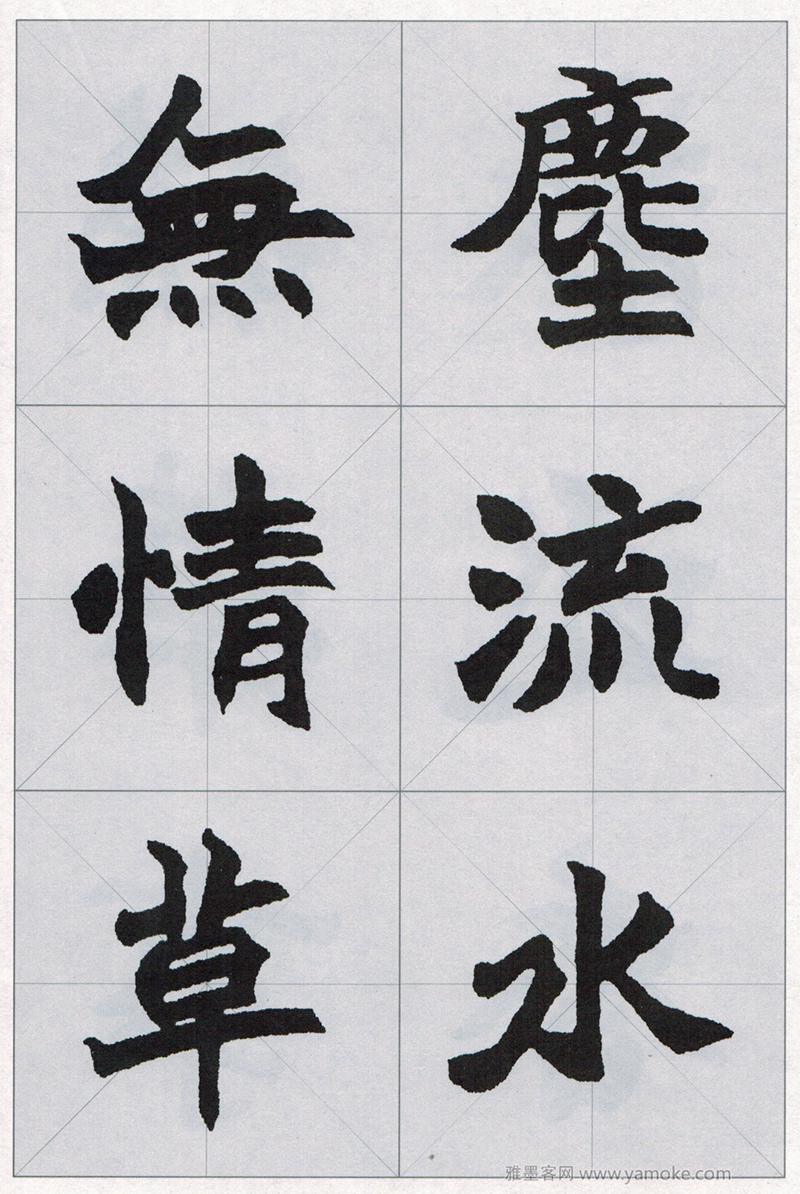 塵流水
無情草
雅墨客网 www.yamoke.com